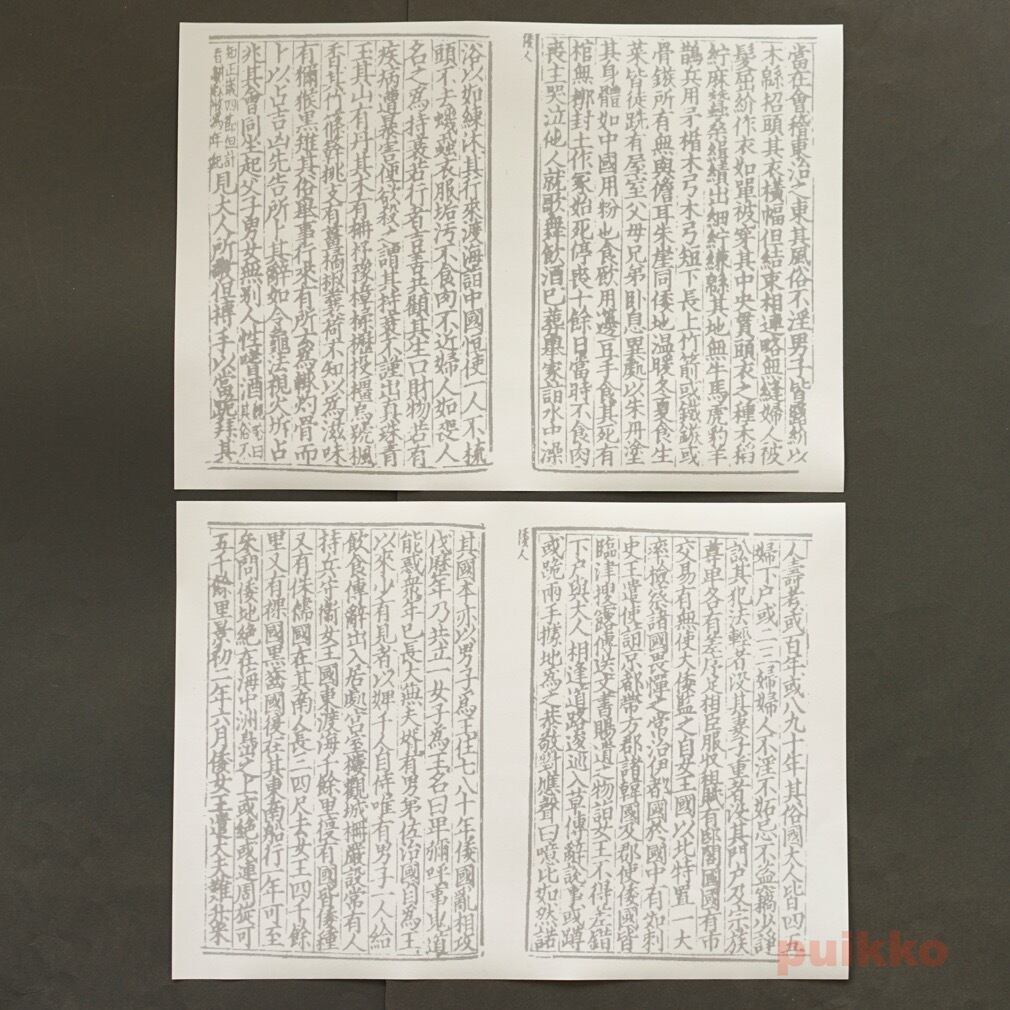 倭人
當在會稽東治之東其風俗不淫男子皆露紒以
木緜招頭其衣橫幅但結束相連略無縫婦人被
髮屈紒作衣如單被穿其中央貫頭衣之種禾稻
紵麻蠶桑緝績出細紵縑緜其地無牛馬虎豹羊
鵲兵用矛楯木弓木弓短下長上竹箭或鐵鏃或
骨鏃所有無與儋耳朱崖同倭地溫暖冬夏食生
菜皆徒跣有屋室父母兄弟臥息異處以朱丹塗
其身體如中國用粉也食飲用籩豆手食其死有
棺無槨封土作冢始死停喪十餘日當時不食肉
喪主哭泣他人就歌舞飲酒已葬舉家詣水中澡
浴以如練沐其行來渡海詣中國恒使一人不梳
頭不去蟣蝨衣服垢汚不食肉不近婦人如喪人
名之爲持衰若行者吉善共顧其生口財物若有
疾病遭暴害便欲殺之謂其持衰不謹出真珠青
玉其山有丹其木有柟杼豫樟楺櫪投橿烏號楓
香其竹篠簳桃支有薑橘椒蘘荷不知以爲滋味
有獮猴黑雉其俗舉事行來有所云爲輒灼骨而
卜以占吉凶先告所卜其辭如令龜法視火坼占
兆其會同坐起父子男女無別人性嗜酒
見大人所敬但搏手以當跪拜其
倭人
人壽考或百年或八九十年其俗國大人皆四五
婦下戶或二三婦婦人不淫不妬忌不盜竊少諍
訟其犯法輕者没其妻子重者没其門戶及宗族
尊卑各有差序足相臣服收租賦有邸閣國國有市
交易有無使大倭監之自女王國以北特置一大
率檢察諸國畏憚之常治伊都國於國中有如刺
史王遣使詣京都帶方郡諸韓國及郡使倭國皆
臨津搜露傳送文書賜遺之物詣女王不得差錯
下戶與大人相逢道路逡巡入草傳辭說事或蹲
或跪兩手據地爲之恭敬對應聲曰噫比如然諾
其國本亦以男子爲王住七八十年倭國亂相攻
伐歷年乃共立一女子爲王名曰卑彌呼事鬼道
能惑衆年已長大無夫壻有男弟佐治國自爲王
以來少有見者以婢千人自侍唯有男子一人給
飲食傳辭出入居處宮室樓觀城柵嚴設常有人
持兵守衞女王國東渡海千餘里復有國皆倭種
又有侏儒國在其南人長三四尺去女王四千餘
里又有裸國黑齒國復在其東南船行一年可至
參問倭地絕在海中洲島之上或絕或連周旋可
五千餘里景初二年六月倭女王遣大夫難升米
puikko